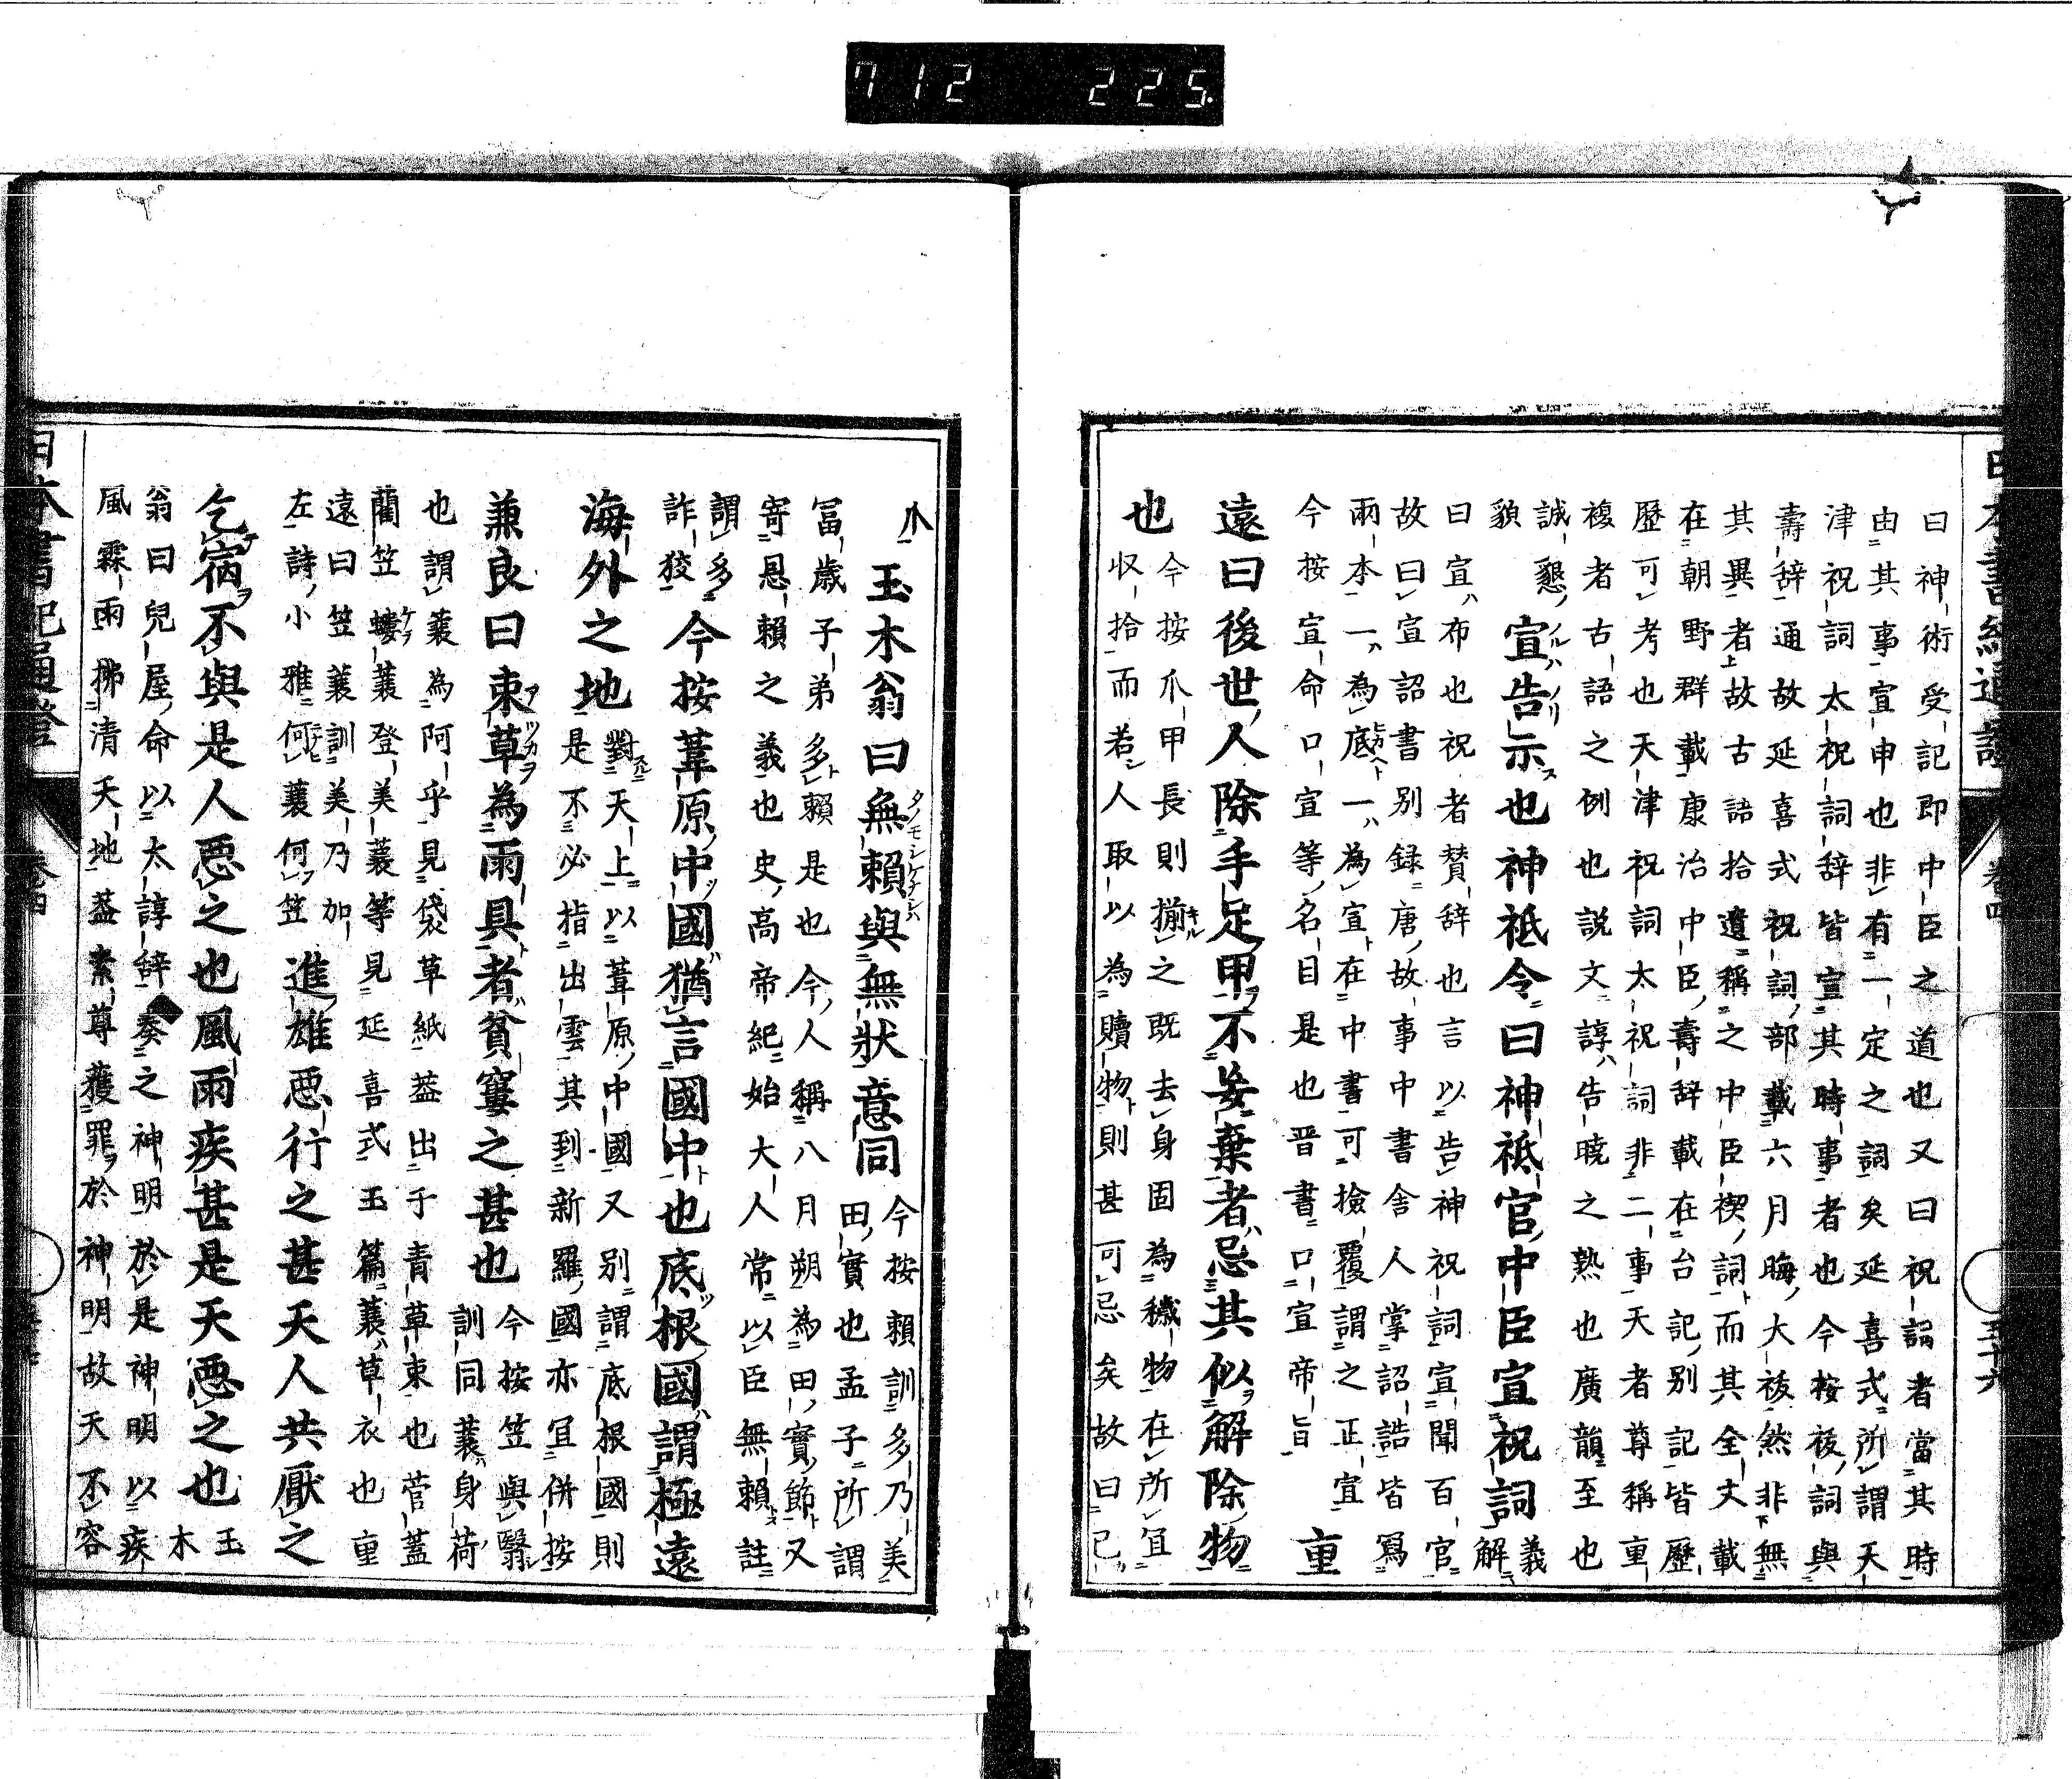 712 225
曰神術受記即中臣之道也又曰祝詞者當其時
由其事宣申也非有一定之詞矣延喜式所謂天
津祝詞太祝詞辞皆宣其時事者也今按後詞與
壽辞通故延喜式祝詞部載六月晦大祓然非無
其異者故古語拾遺稱之中臣禊詞而其全文載
在朝野群載康治中臣壽辞載在台記別記皆歷
歷可考也天津祝詞太祝詞非二事天者尊稱重
複者古語之例也説文諄告曉之熟也廣韻至也
誠懇
貌
宣告示也神祇令曰神祇官中臣宣祝詞
義
解
曰宣布也祝者賛辞也言以告神祝詞宣聞百官
故曰宣詔書別録唐故事中書舎人掌詔誥皆寫
兩本一為底一為宣在中書可撿覆謂之正宣
今按宣命口宣等名目是也晋書口宣帝旨
重
遠曰後世人除手足甲不妄棄者忌其似解除物
也
今按爪甲長則揃之既去身固為穢物在所宜
収拾而若人取以為贖物則甚可忌矣故曰已
爪
玉木翁曰無賴與無狀意同
今按賴訓多乃美
田實也孟子所謂
冨歳子弟多賴是也今人稱八月朔為田實節又
寄恩賴之義也史高帝紀始大人常以臣無賴註
謂多
詐狡
今按葦原中國猶言國中也底根國謂極遠
海外之地
對天上以葦原中國又別謂底根國則
是不必指出雲其到新羅國亦宜併按
兼良曰束草為雨具者貧窶之甚也
今按笠與翳
訓同蓑身荷
也謂蓑為阿乎見袋草紙葢出于青草束也菅蓋
藺笠螻蓑登美蓑等見延喜式玉篇蓑草衣也重
遠曰笠蓑訓美乃加
左詩小雅何蓑何笠
進雄悪行之甚天人共厭之
乞宿不與是人悪之也風雨疾甚是天悪之也
玉
木
翁曰兒屋命以太諄辞奏之神明於是神明以疾
風霖雨拂清天地葢素尊獲罪於神明故天不容